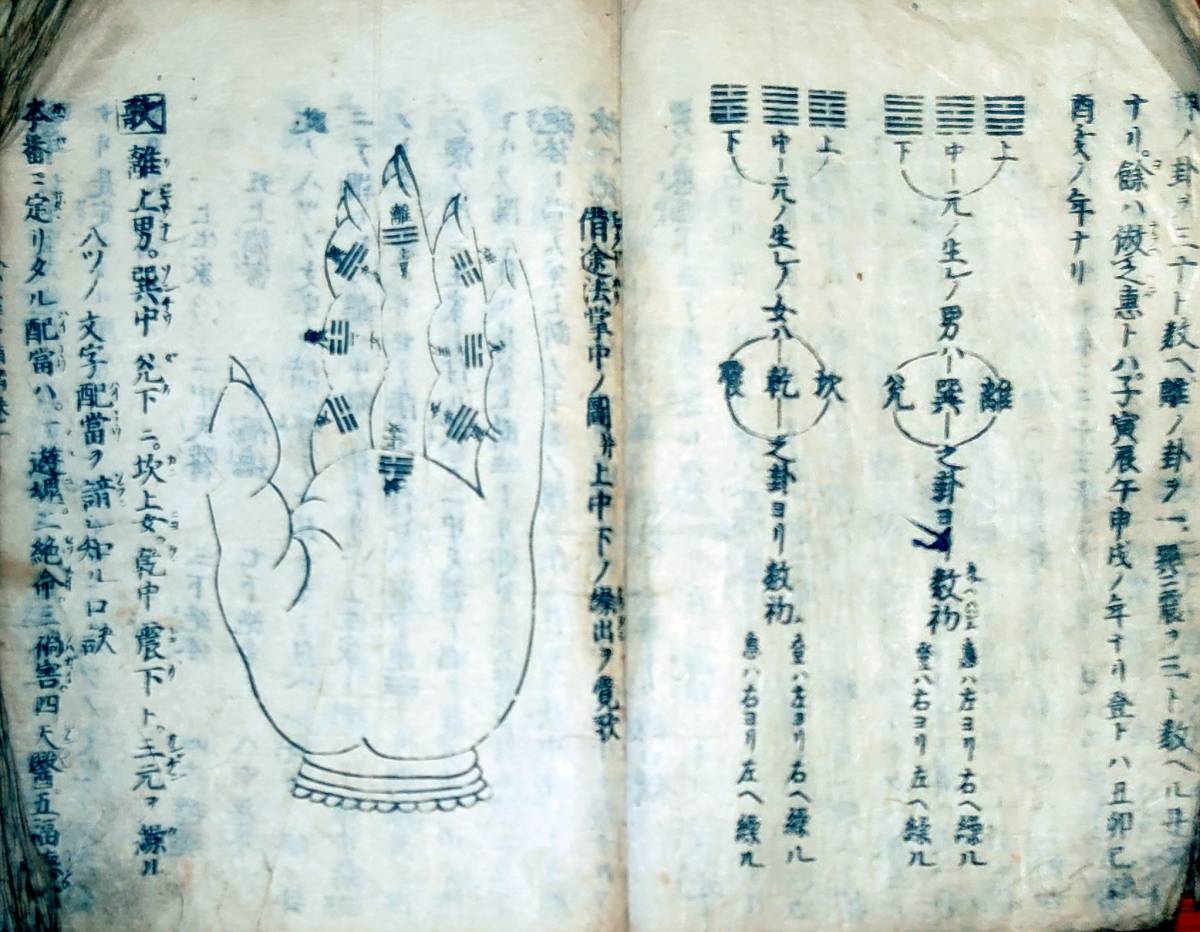 ノ卦ヲ二十ト数ヘ離ノ卦ヲ一、巽二震ヲ三ト数ヘル
ナリ。餘ハ倣之惠トハ子寅辰午申戌ノ年ナリ登トハ丑卯巳
酉亥ノ年ナリ
上
中
下
元ノ生レノ男ハ
離
巽
兌
之卦ヨリ
数初
惠ハ左ヨリ右ヘ繰ル
登ハ右ヨリ左ヘ繰ル
上
中
下
元ノ生レノ女ハ
坎
乾
震
之卦ヨリ
数初
登ハ左ヨリ右ヘ繰ル
惠ハ右ヨリ左ヘ繰ル
借途法掌中ノ圖并上中下ノ繰出ヲ覚歌
離
歌 離上男。巽中兌下ニ。坎上女。乾中震下ト。三元ヲ繰ル
八ツノ文字配當ヲ請ヒ知ル口訣
本番ニ定リタル配當ハ。一遊魂二絶命三禍害四天醫五福